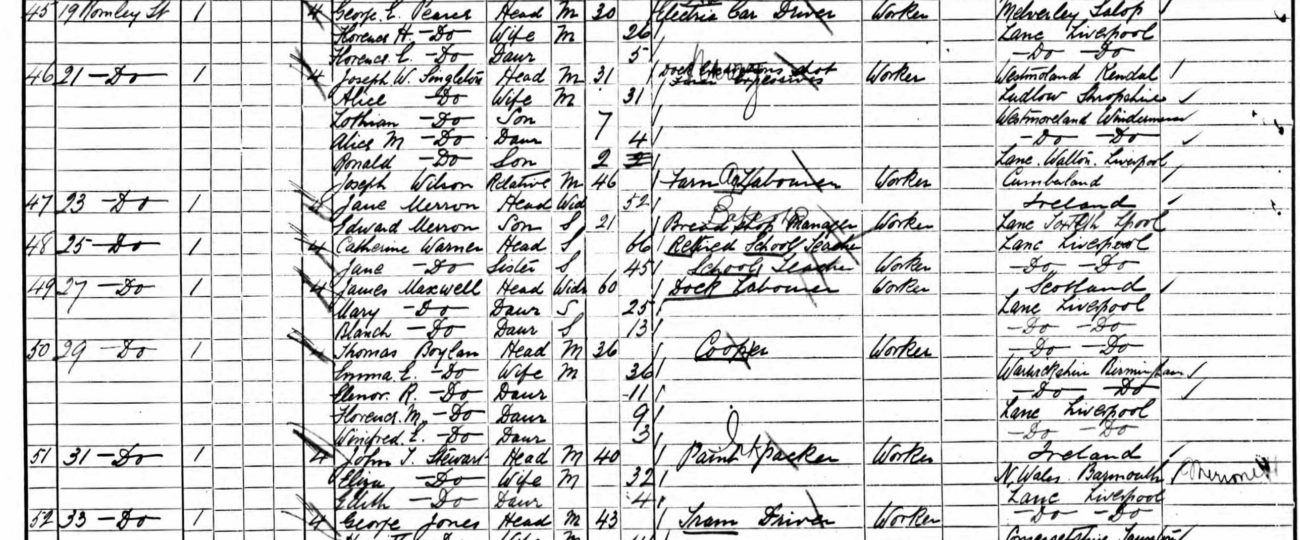 45 19 Romley St 1 4 George E. Pearce Head M 30 Electric Car Driver Worker Melverley Salop
Florence H. -Do Wife M 26 Lanc Liverpool
Florence E. -Do Daur 5 -Do -Do
46 21 -Do 1 4 Joseph W. Singleton Head M 31 Dock Worker Westmoland Kendal
Alice -Do Wife M 31 Ludlow Shropshire
Lothian -Do Son 7 Westmoreland Windermere
Alice M -Do Daur 4 -Do -Do
Ronald -Do Son 2 Lanc. Walton. Liverpool
Joseph Wilson Relative M 46 Farm Labourer Worker Cumberland
47 23 -Do 1 4 Jane Merron Head Wid 52 Ireland
Edward Merron Son S 21 Bread Shop Manager Worker Lanc Lpool
48 25 -Do 1 4 Catherine Warner Head S 66 Retired School Teacher Lanc Liverpool
Jane -Do Sister S 45 Schools Teacher Worker -Do -Do
49 27 -Do 1 4 James Maxwell Head Widr 60 Dock Labourer Worker Scotland
Mary -Do Daur S 25 Lanc Liverpool
Blanch -Do Daur S 13 -Do -Do
50 29 -Do 1 4 Thomas Boylan Head M 36 Cooper Worker -Do -Do
Emma E. -Do Wife M 36 Warwickshire Birmingham
Elenor. R. -Do Daur 11 -Do -Do
Florence. M. -Do Daur 9 Lanc Liverpool
Winifred. E. -Do Daur 3 -Do -Do
51 31 -Do 1 4 John T. Stewart Head M 40 Paint Packer Worker Ireland
Eliza -Do Wife M 32 N. Wales. Barmouth
Edith -Do Daur 4 Lanc Liverpool
52 33 -Do 1 4 George Jones Head M 43 Tram Driver Worker -Do -Do